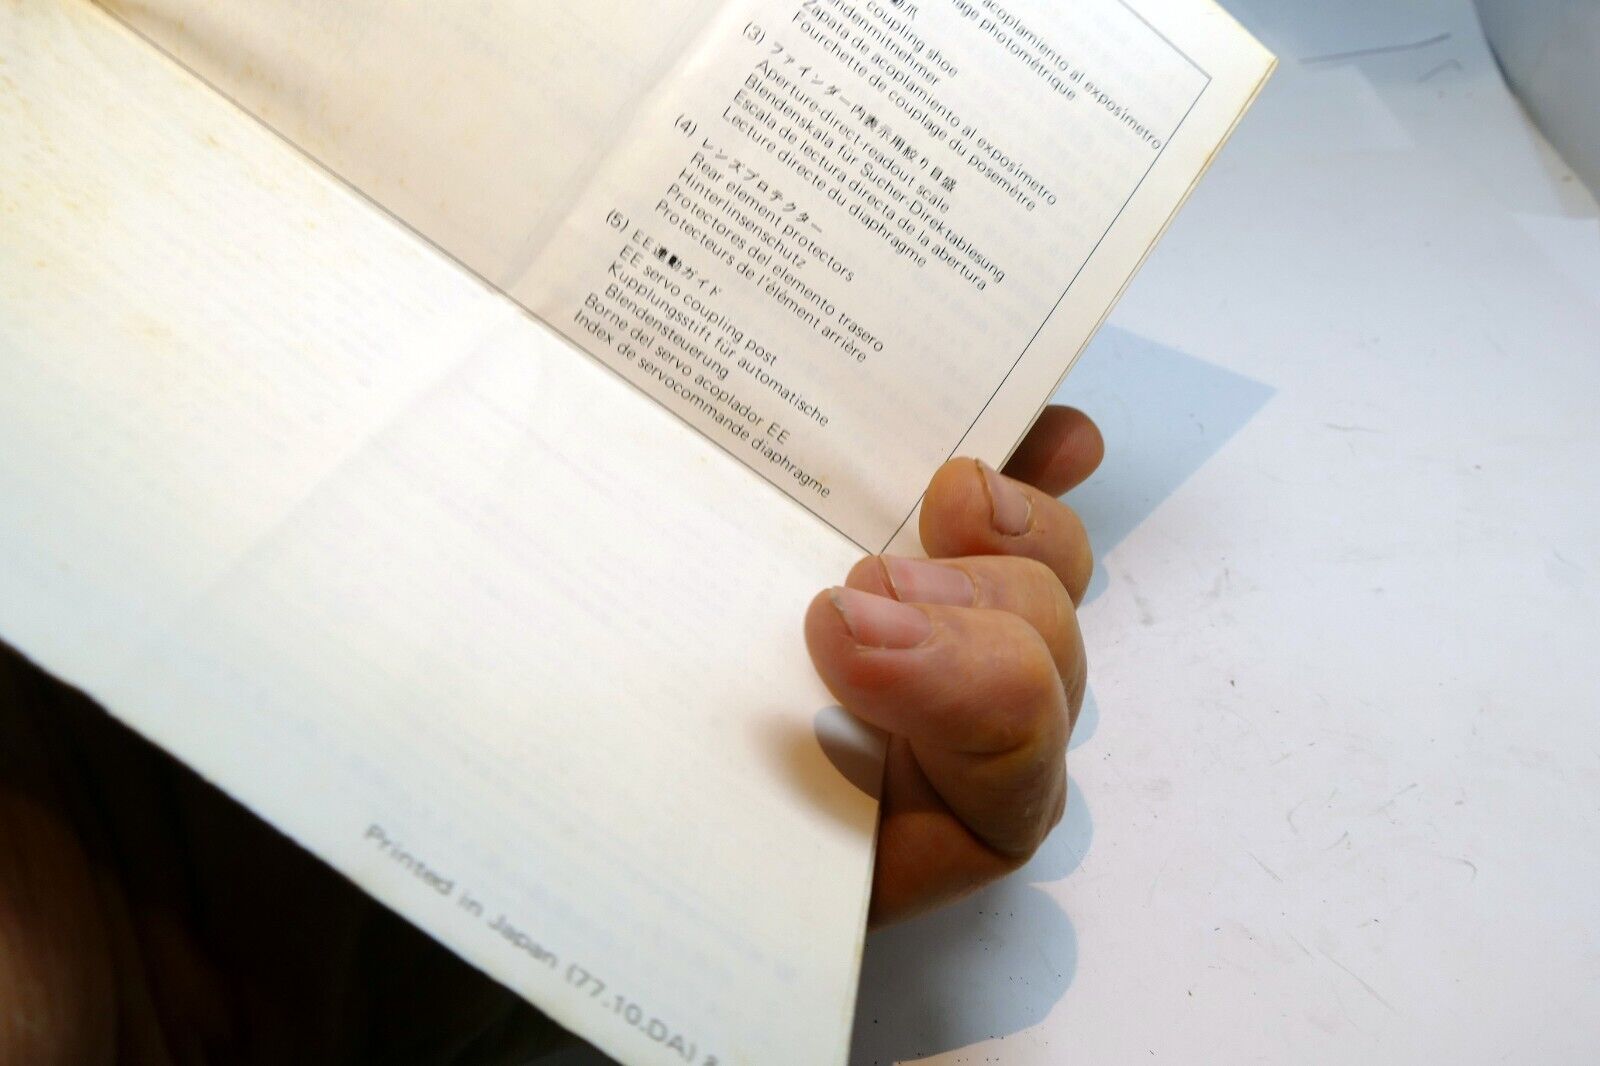 acoplamiento al exposímetro
photométrique
coupling shoe
Blendenmitnehmer
Zapata de acoplamiento al exposímetro
Fourchette de couplage du posemètre
(3) ファインダー内表示用絞り目盛
Aperture-direct-readout scale
Blendenskala für Sucher-Direktablesung
Escala de lectura directa de la abertura
Lecture directe du diaphragme
(4) レンズプロテクター
Rear element protectors
Hinterlinsenschutz
Protectores del elemento trasero
Protecteurs de l'élément arrière
(5) EE連動ガイド
EE servo coupling post
Kupplungsstift für automatische
Blendensteuerung
Borne del servo acoplador EE
Index de servocommande diaphragme
Printed in Japan (77.10.DA)